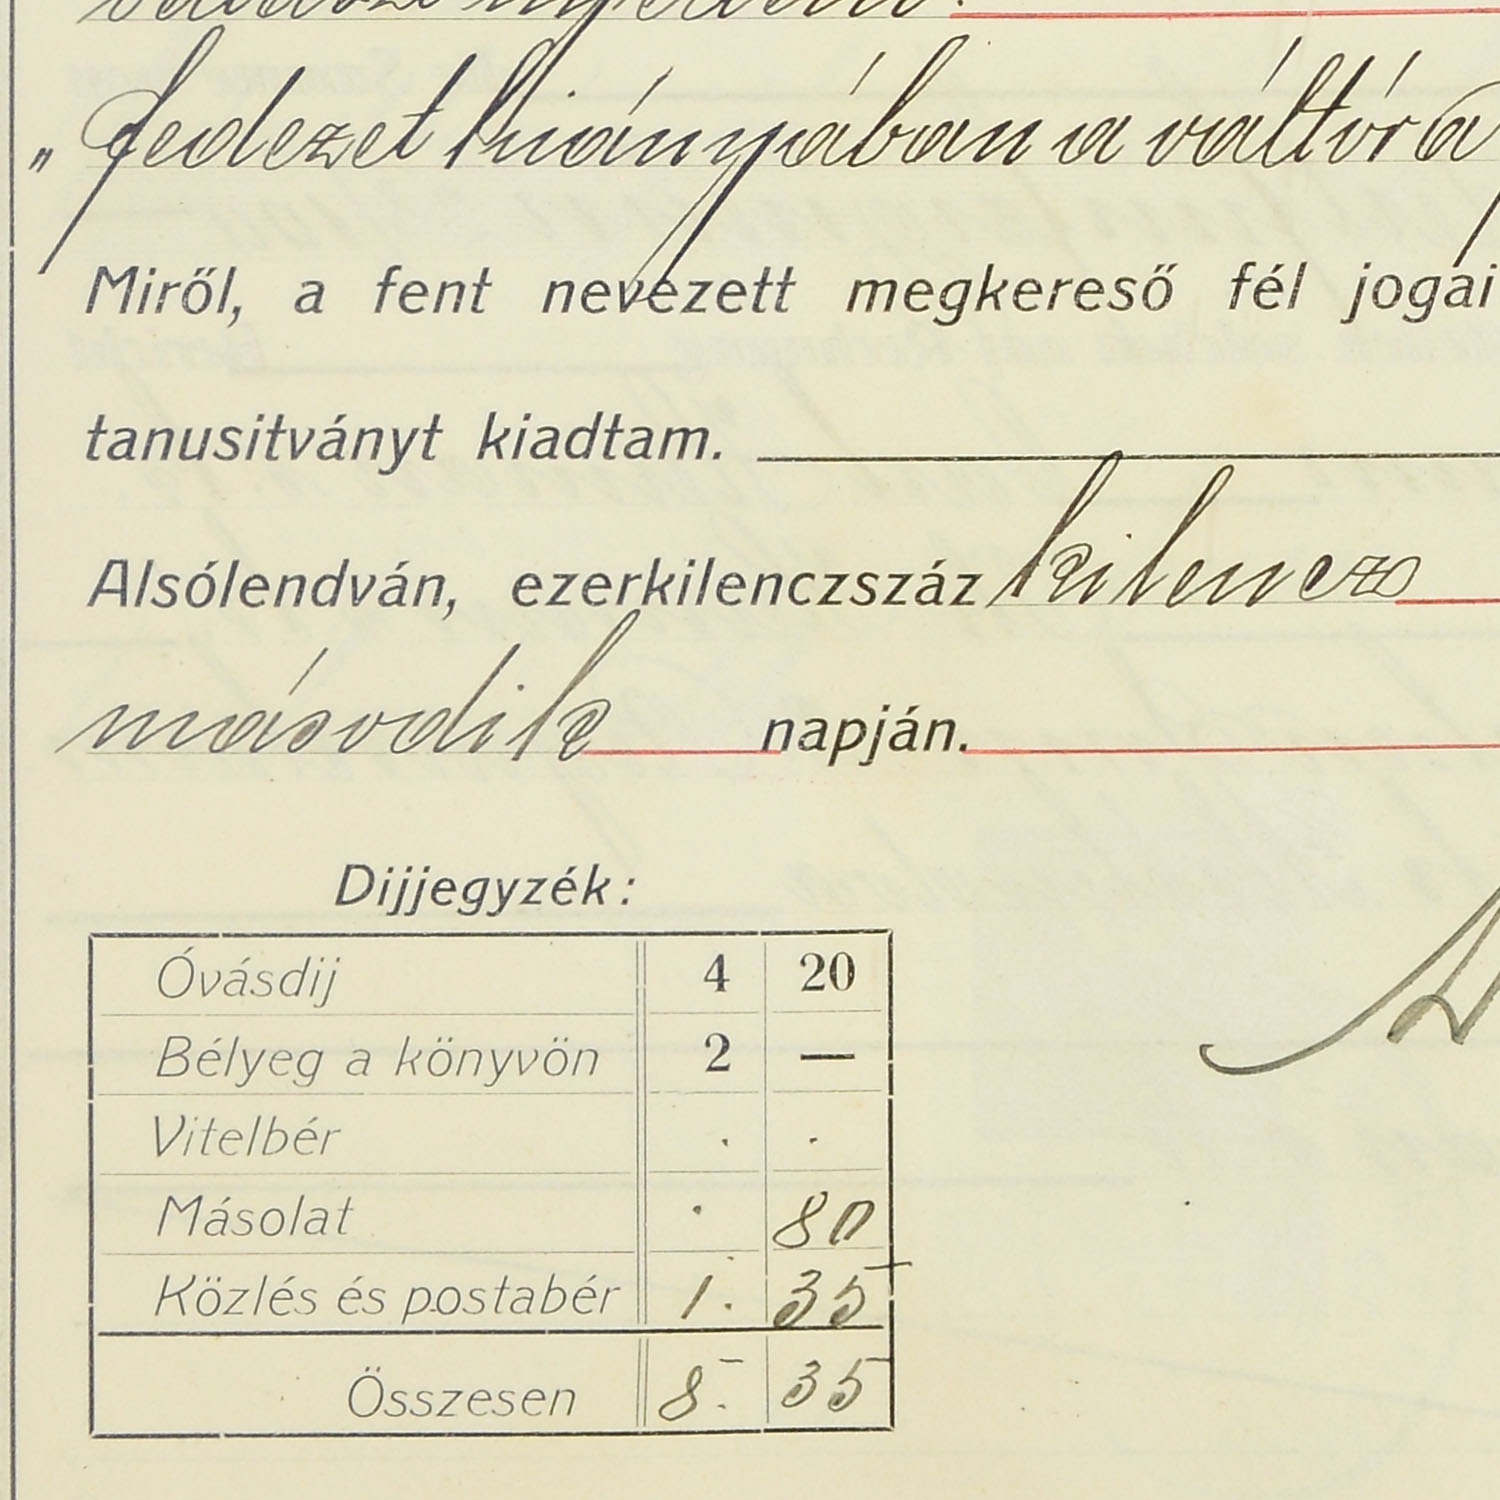 „ fedezet hiányában a váltóra
Miről, a fent nevezett megkereső fél jogai
tanusitványt kiadtam.
Alsólendván, ezerkilenczszáz kilencz
második napján.
Dijjegyzék:
Óvásdij 4 20
Bélyeg a könyvön 2 —
Vitelbér . .
Másolat . 80
Közlés és postabér 1. 35
Összesen 8. 35